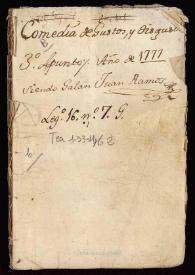 Comedia de Gustos, y disgus
3.º Apunto, Año de 1777
Siendo Galan Juan Ramos
Leg.º 16. n.º 7. G.
Tea 1-33-14, 2